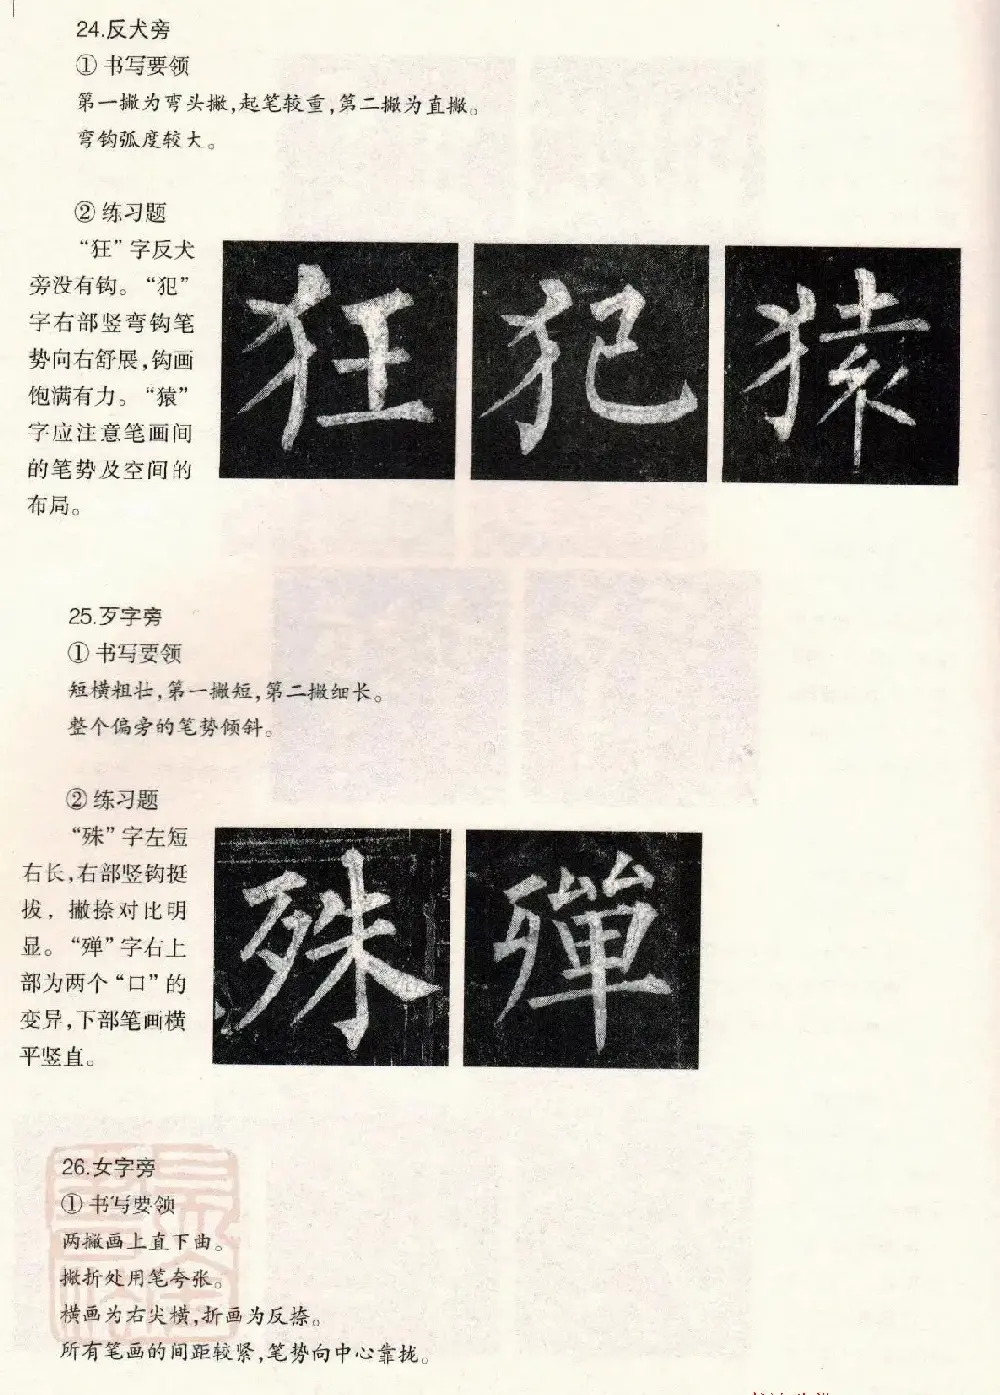 24.反犬旁
① 书写要领
第一撇为弯头撇,起笔较重,第二撇为直撇。
弯钩弧度较大。
② 练习题
“狂”字反犬
旁没有钩。“犯”
字右部竖弯钩笔
势向右舒展,钩画
饱满有力。“猿”
字应注意笔画间
的笔势及空间的
布局。
狂 犯 猿
25.歹字旁
① 书写要领
短横粗壮,第一撇短,第二撇细长。
整个偏旁的笔势倾斜。
② 练习题
“殊”字左短
右长,右部竖钩挺
拔，撇捺对比明
显。“殚”字右上
部为两个“口”的
变异,下部笔画横
平竖直。
殊 殫
26.女字旁
① 书写要领
两撇画上直下曲。
撇折处用笔夸张。
横画为右尖横,折画为反捺。
所有笔画的间距较紧,笔势向中心靠拢。